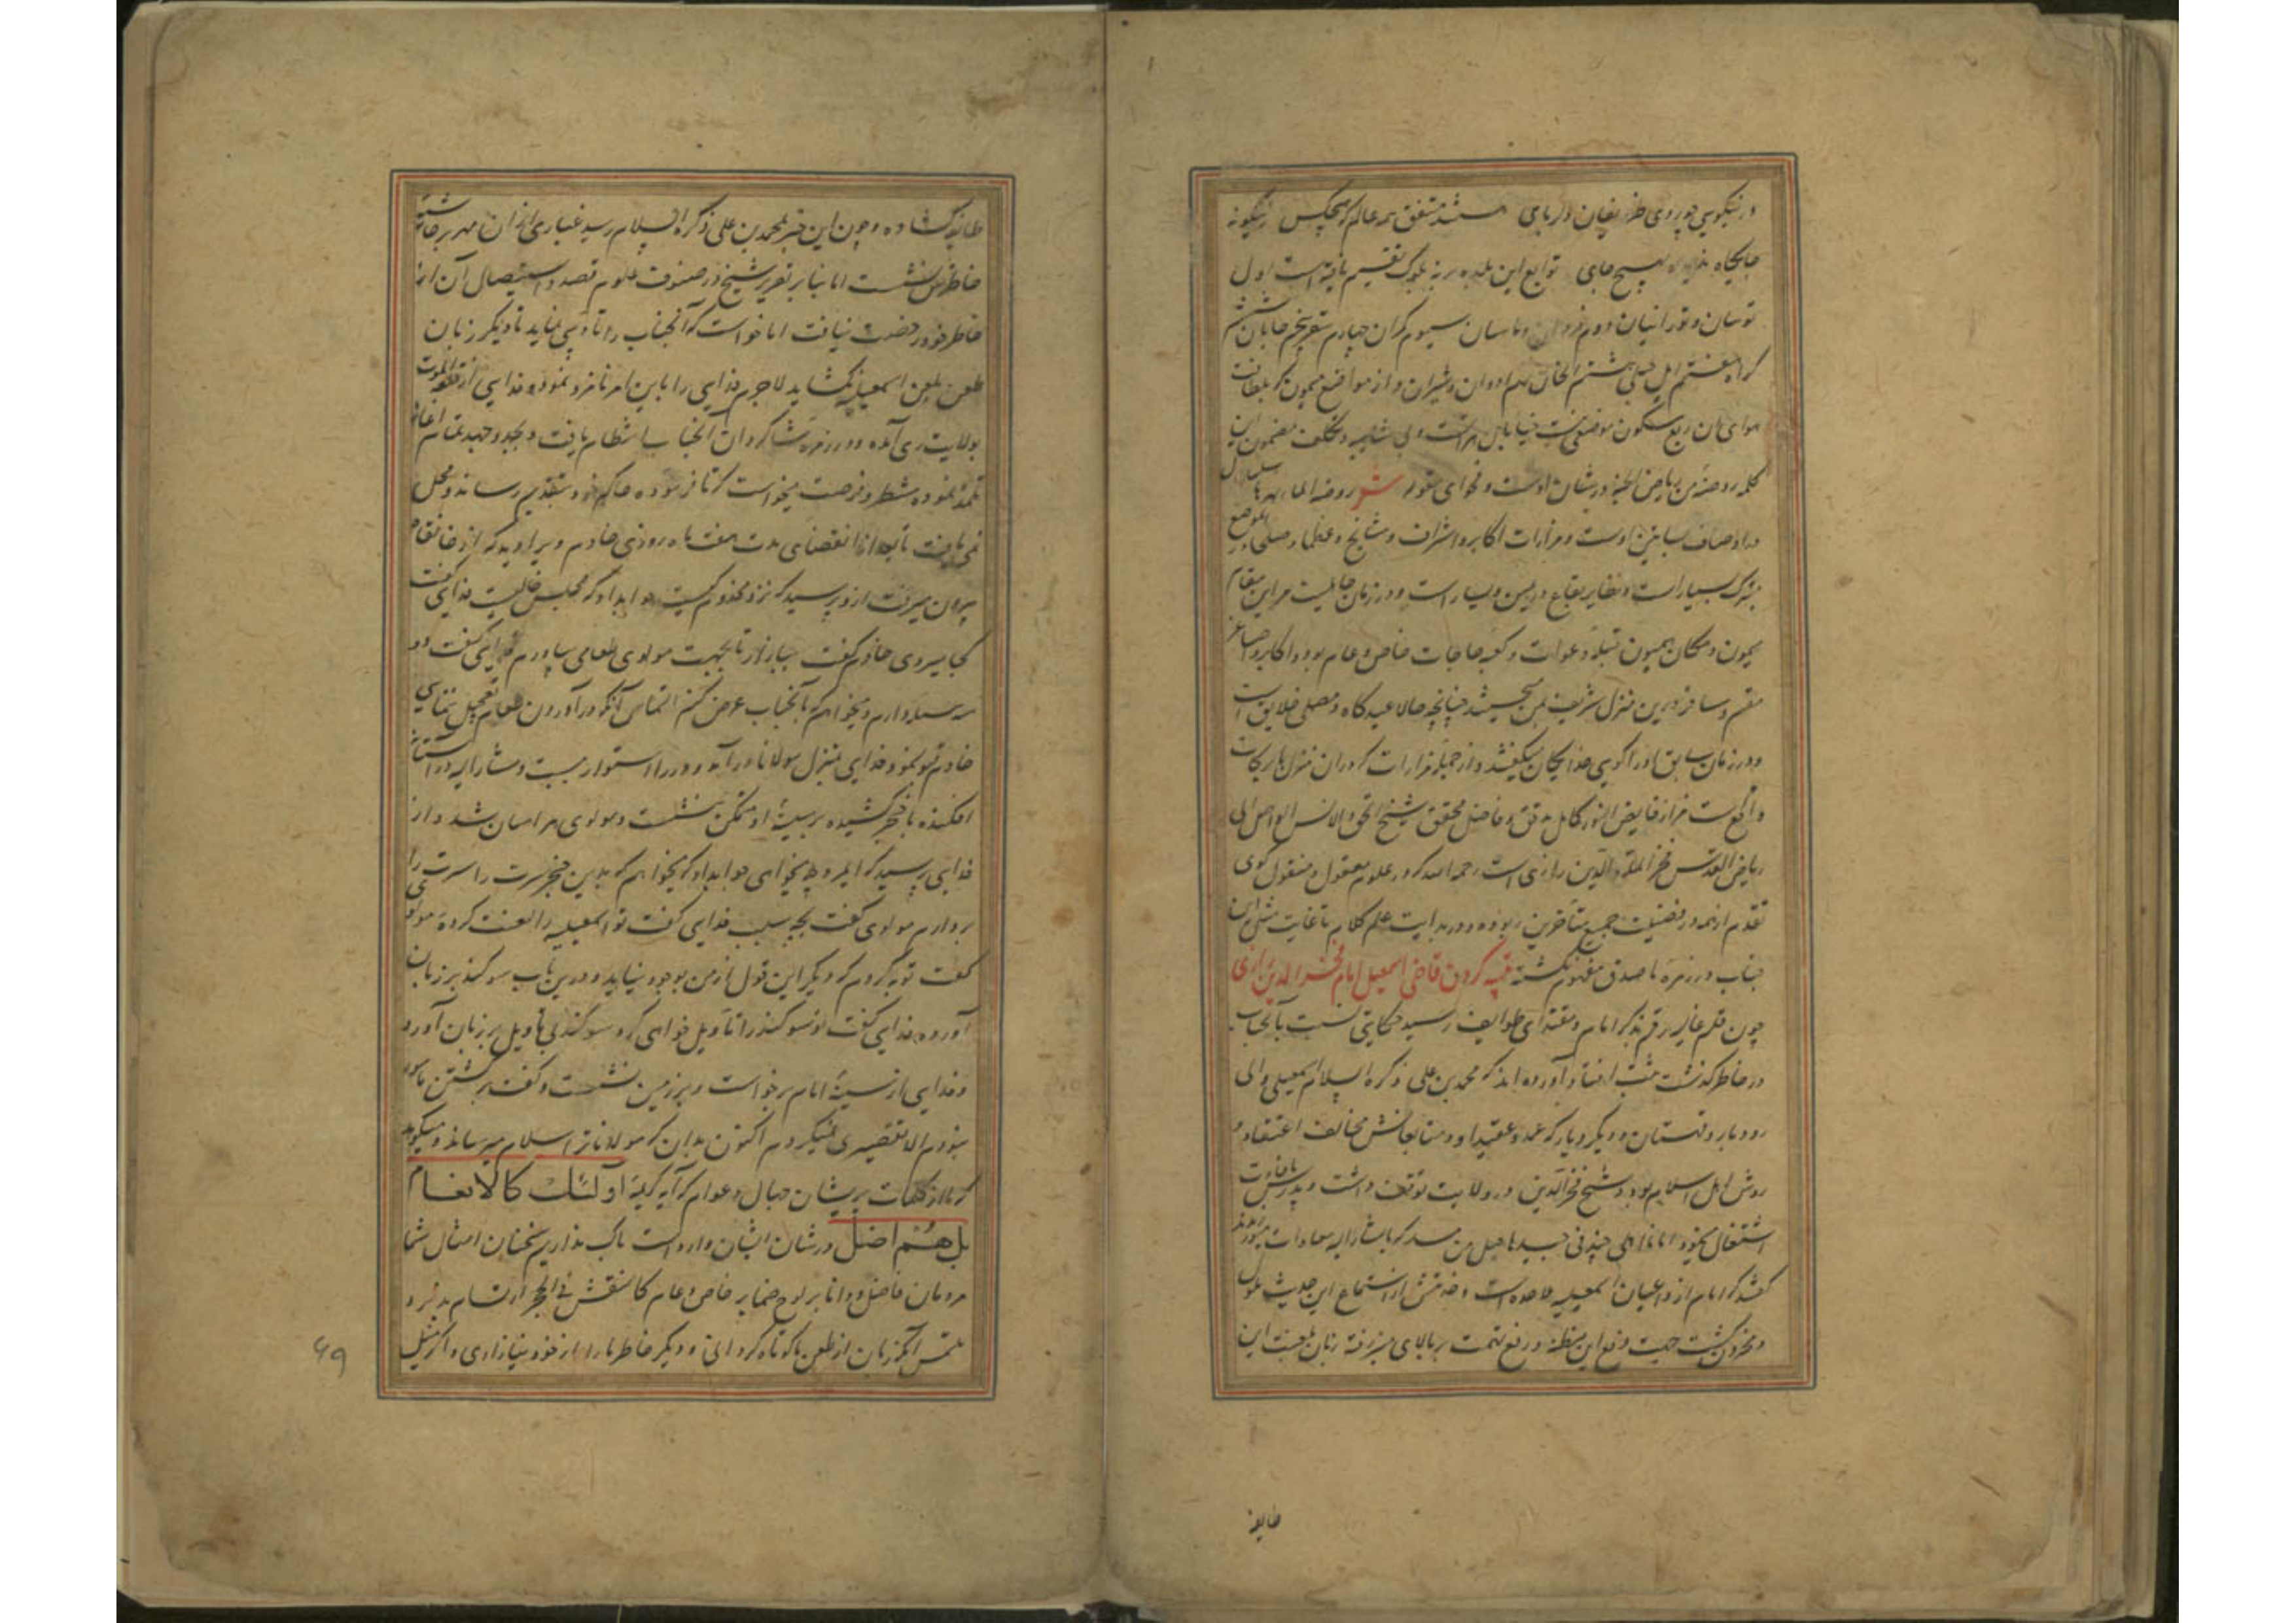 در نیکویی چو روی ظریفان دلربای مستند متفق همه عالم که هیچکس زینگونه
جایگاه بهیچ جای توابع این بلده بر نه بلوک تقسیم یافته است اول
توسان و تورانیان دوم سیوم گران چهارم پنجم خابان ششم
هفتم هشتم النجان نهم ادوان و تیزان و از مواضع میمون که بلطافت
هوای آن ربع مسکون موضعی نیست خیابان هراتست و بی شایبه و تکلف مضمون این
کلمه روضة من ریاض الجنة در شان اوست و فحوای مقوله شعر روضة الماء نهرها سلسال
در اوصاف بساتین اوست و مزارات اکابر و اشراف و مشایخ و عظما و صلحا در موضع
متبرک بسیار است و نظایر بقاع در یمین و یسار است و در زمان جاهلیت مر این مقام
میمون و مکان همیون قبله دعوات و کعبه حاجات خاص و عام بوده و اکابر و اصاغر
مقیم و مسافر درین منزل شریف چنانچه حالا عیدگاه و مصلی خلایق است
و در زمان سابق او را کوی خدایگان میگفتند و از جمله مزارات که در آن منزل بابرکات
واقع است مزار فایض النور کامل مدقق و فاضل محقق شیخ الجن و الانس الواصل الی
ریاض القدس فخر الملة و الدین رازی است رحمه الله که در علوم معقول و منقول گوی
تقدم از همه در فضیلت جمیع متاخرین ربوده و در بدایت علم کلام تا غایت مثل آن
جناب در زمره ما صدق مفهوم نگشته قصه کردن قاضی اسمعیل امام فخر الدین رازی
چون قلم بذکر امام و مقتدای طوایف رسید حکایتی نسبت بآنجناب
در خاطر گذشت مثبت افتاد آورده اند که محمد بن علی ذکره السلام اسمعیلی والی
رودبار و قهستان و دیگر دیار که عمده عقیده او و متابعانش مخالف اعتقاد و
روش اهل اسلام بود و شیخ فخر الدین در ولایت توقف داشت و بدرس و افادت
اشتغال مینمود اما نااهلی چند که با مشار الیه معادات میورزیدند
گفتند که امام از داعیان اسمعیلیه ملاحده است و خدمتش از استماع این حدیث ملول
و محزون گشت جهت دفع این مظنه و رفع تهمت بر بالای منبر رفته زبان بلعنت این
طایفه
طایفه گشاده و چون این خبر بمحمد بن علی ذکره السلام رسید غباری از آن ممر بر حاشیه
خاطرش نشست اما بنا بر تقریر شیخ در صنوف علوم قصد و استیصال آن از
خاطر خود رخصت نیافت اما خواست که آنجناب را تادیبی نماید تا دیگر زبان
طعن بلعن اسمعیلیه نگشاید لاجرم فدایی را باین امر نامزد نمود و فدایی از قلعه الموت
بولایت ری آمده و در زمره شاگردان آنجناب انتظام یافت و بجد و جهد تمام
تلمذ نموده منتظر فرصت میخواست که تا فرموده حاکم خود بتقدیم رساند و محل
نمی یافت تا بعد از انقضای مدت هفت ماه روزی خادم ویرا دید که از خانقاه
بیرون میرفت ازو پرسید که نزد مخدوم کیست جواب داد که مجلس خالیست فدایی گفت
کجا میروی خادم گفت ببازار تا بجهت مولوی طعامی بیاورم فدایی گفت دو
سه مسئله دارم و میخواهم که بآنجناب عرض کنم التماس آنکه در آوردن طعام تعجیل ننمایی
خادم قبول نمود فدایی بمنزل مولانا در آمد و در را استوار ببست و مشار الیه را
افکنده با خنجر کشیده بر سینه او متمکن بنشست و مولوی هراسان شد و از
فدایی پرسید که ای مرد چه میخواهی جواب داد که میخواهم که بدین خنجر سرت را
بردارم مولوی گفت بچه سبب فدایی گفت تو اسمعیلیه را لعنت کرده مولوی
گفت توبه کردم که دیگر این قول از من بوجود نیاید و درین باب سوگند بر زبان
آورده فدایی گفت این سوگند را تاویل خواهی کرد سوگند بی تاویل بر زبان آورد
و فدایی از سینه امام برخواست و بر زمین نشست و گفت بکشتن مامور
نبودم الا تقصیری نمیکردم اکنون بدان که مولانا ترا سلام میرساند و میگوید
که ما از کلمات پریشان جهال و عوام که آیه کریمه اولئک کالانعام
بل هم اضل در شان ایشان وارد است باک نداریم سخنان امثال شما
مردمان فاضل و دانا بر لوح ضمایر خاص و عام کالنقش فی الحجر ارتسام پذیرد
ملتمس آنکه زبان از طعن ما کوتاه گردانی و دیگر خاطر ما را از خود نیازاری و اگر
۶۹